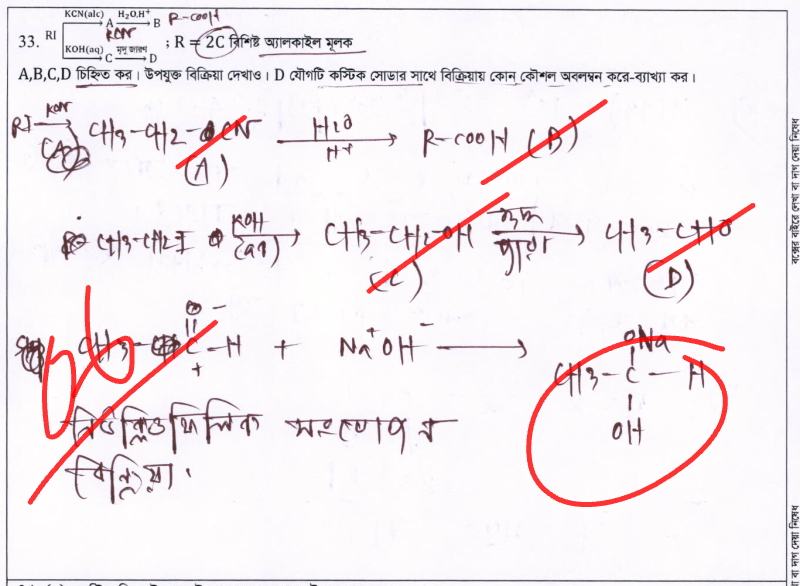 33. RI KCN(alc) A H₂O,H⁺ B R-COOH
KCN
KOH(aq) C মৃদু জারণ D ; R = 2C বিশিষ্ট অ্যালকাইল মূলক
A,B,C,D চিহ্নিত কর। উপযুক্ত বিক্রিয়া দেখাও। D যৌগটি কস্টিক সোডার সাথে বিক্রিয়ায় কোন্ কৌশল অবলম্বন করে-ব্যাখ্যা কর।
RI KCN CH3-CH2-CN H2O H+ R-COOH (B)
(A)
CH3-CH2-I KOH (aq) CH3-CH2-OH মৃদু জারণ CH3-CHO
(C) (D)
CH3-C-H + Na+OH- CH3-C-H
O - + ONa OH
নিউক্লিওফিলিক সংযোজন
বিক্রিয়া।
বক্সের বাইরে লেখা বা দাগ দেয়া নিষেধ
বা দাগ দেয়া নিষেধ